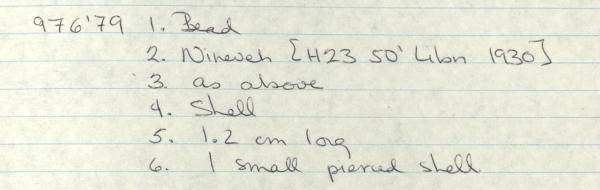 976'79 1. Bead
2. Nineveh [H23 50' Libn 1930]
3. as above
4. Shell
5. 1.2 cm long
6. 1 small pierced shell